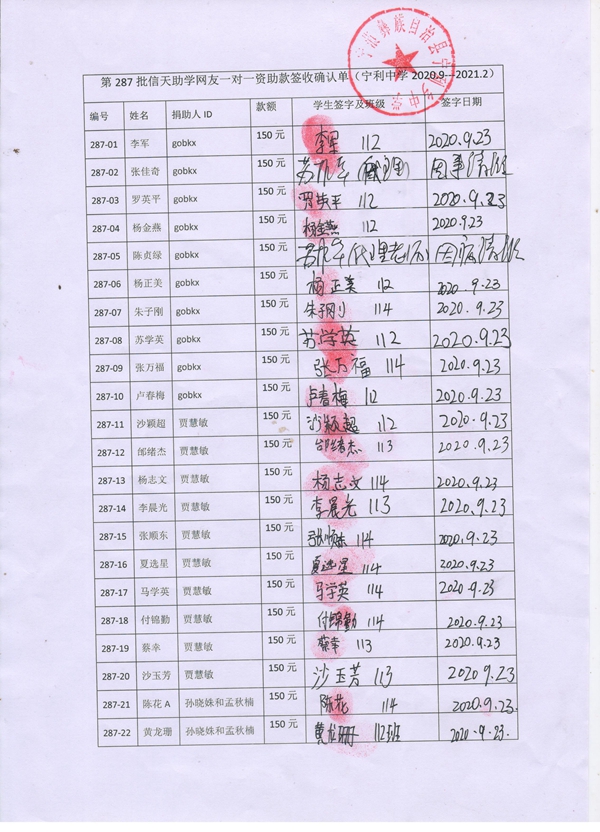 宁蒗彝族自治县宁利乡中学
第 287 批信天助学网友一对一资助款签收确认单（宁利中学 2020.9---2021.2）
编号 姓名 捐助人 ID 款额 学生签字及班级 签字日期
287-01 李军 gobkx 150 元 李军 112 2020.9.23
287-02 张佳奇 gobkx 150 元 (代理) 因事请假
287-03 罗英平 gobkx 150 元 罗英平 112 2020.9.23
287-04 杨金燕 gobkx 150 元 杨金燕 112 2020.9.23
287-05 陈贞绿 gobkx 150 元 (代理老师) 因病请假
287-06 杨正美 gobkx 150 元 杨正美 112 2020.9.23
287-07 朱子刚 gobkx 150 元 朱子刚 114 2020.9.23
287-08 苏学英 gobkx 150 元 苏学英 112 2020.9.23
287-09 张万福 gobkx 150 元 张万福 114 2020.9.23
287-10 卢春梅 gobkx 150 元 卢春梅 112 2020.9.23
287-11 沙颖超 贾慧敏 150 元 沙颖超 112 2020.9.23
287-12 邰绪杰 贾慧敏 150 元 邰绪杰 113 2020.9.23
287-13 杨志文 贾慧敏 150 元 杨志文 114 2020.9.23
287-14 李晨光 贾慧敏 150 元 李晨光 113 2020.9.23
287-15 张顺东 贾慧敏 150 元 张顺东 114 2020.9.23
287-16 夏选星 贾慧敏 150 元 夏选星 114 2020.9.23
287-17 马学英 贾慧敏 150 元 马学英 114 2020.9.23
287-18 付锦勤 贾慧敏 150 元 付锦勤 114 2020.9.23
287-19 蔡幸 贾慧敏 150 元 蔡幸 113 2020.9.23
287-20 沙玉芳 贾慧敏 150 元 沙玉芳 113 2020.9.23
287-21 陈花 A 孙晓姝和孟秋楠 150 元 陈花 114 2020.9.23.
287-22 黄龙珊 孙晓姝和孟秋楠 150 元 黄龙珊 112班 2020.9.23.